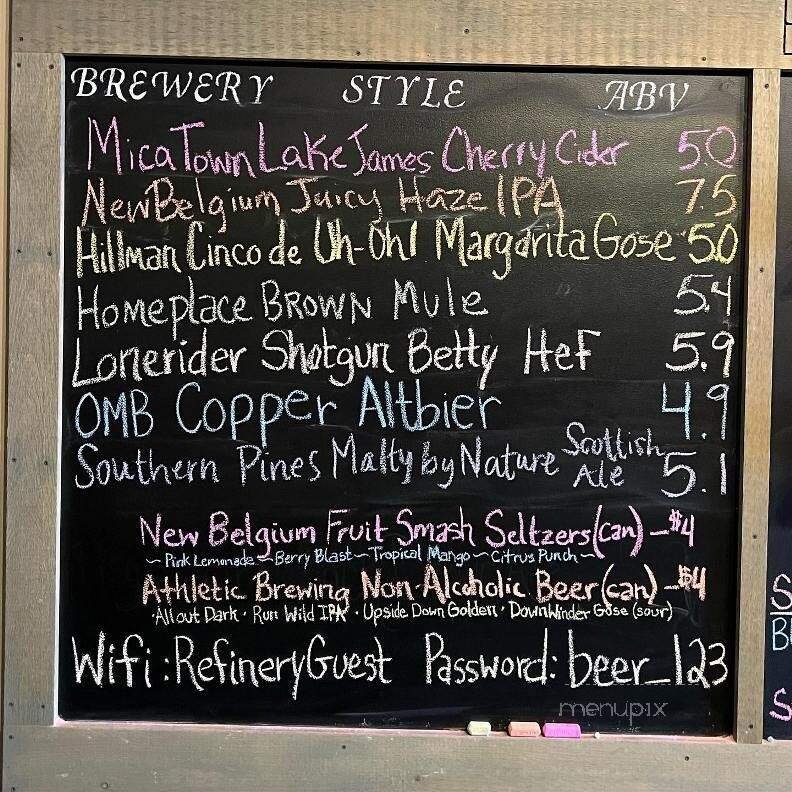 BREWERY STYLE ABV
Mica Town Lake James Cherry Cider 5.0
New Belgium Juicy Haze IPA 7.5
Hillman Cinco de Uh-Oh! Margarita Gose 5.0
Homeplace BROWN Mule 5.4
Lonerider Shotgun Betty Hef 5.9
OMB Copper Altbier 4.9
Southern Pines Malty by Nature Scottish Ale 5.1
New Belgium Fruit Smash Seltzers (can) - $4
~ Pink Lemonade ~ Berry Blast ~ Tropical Mango ~ Citrus Punch ~
Athletic Brewing Non-Alcoholic Beer (can) - $4
· All out Dark · Run Wild IPA · Upside Down Golden · DownWinder Gose (sour)
Wifi: RefineryGuest Password: beer_123
menupix